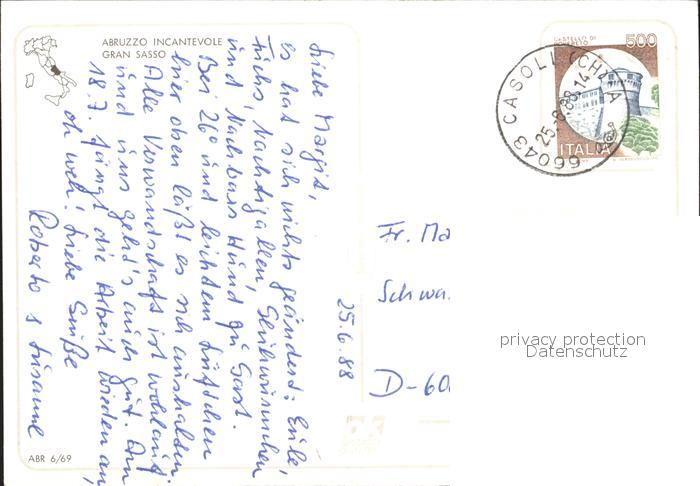 ABRUZZO INCANTEVOLE
GRAN SASSO
Liebe Margit,
es hat sich nichts geändert: Eule,
Fuchs, Nachtigallen, Glühwürmchen
und Nachbars Hund zu Gast.
Bei 26° und leichtem Lüftchen
hier oben läßt es sich aushalten.
Alle Verwandschaft ist wohlauf
und uns geht's auch gut. Am
18.7. fängt die Arbeit wieder an,
oh weh! Liebe Grüße
Roberto s Susanne
25.6.88
ABR 6/69
CASTELLO DI
500
ITALIA
66043 CASOLI (CH)
25.-6.88.14
Fr. Ma
Schwa
D-60
privacy protection
Datenschutz